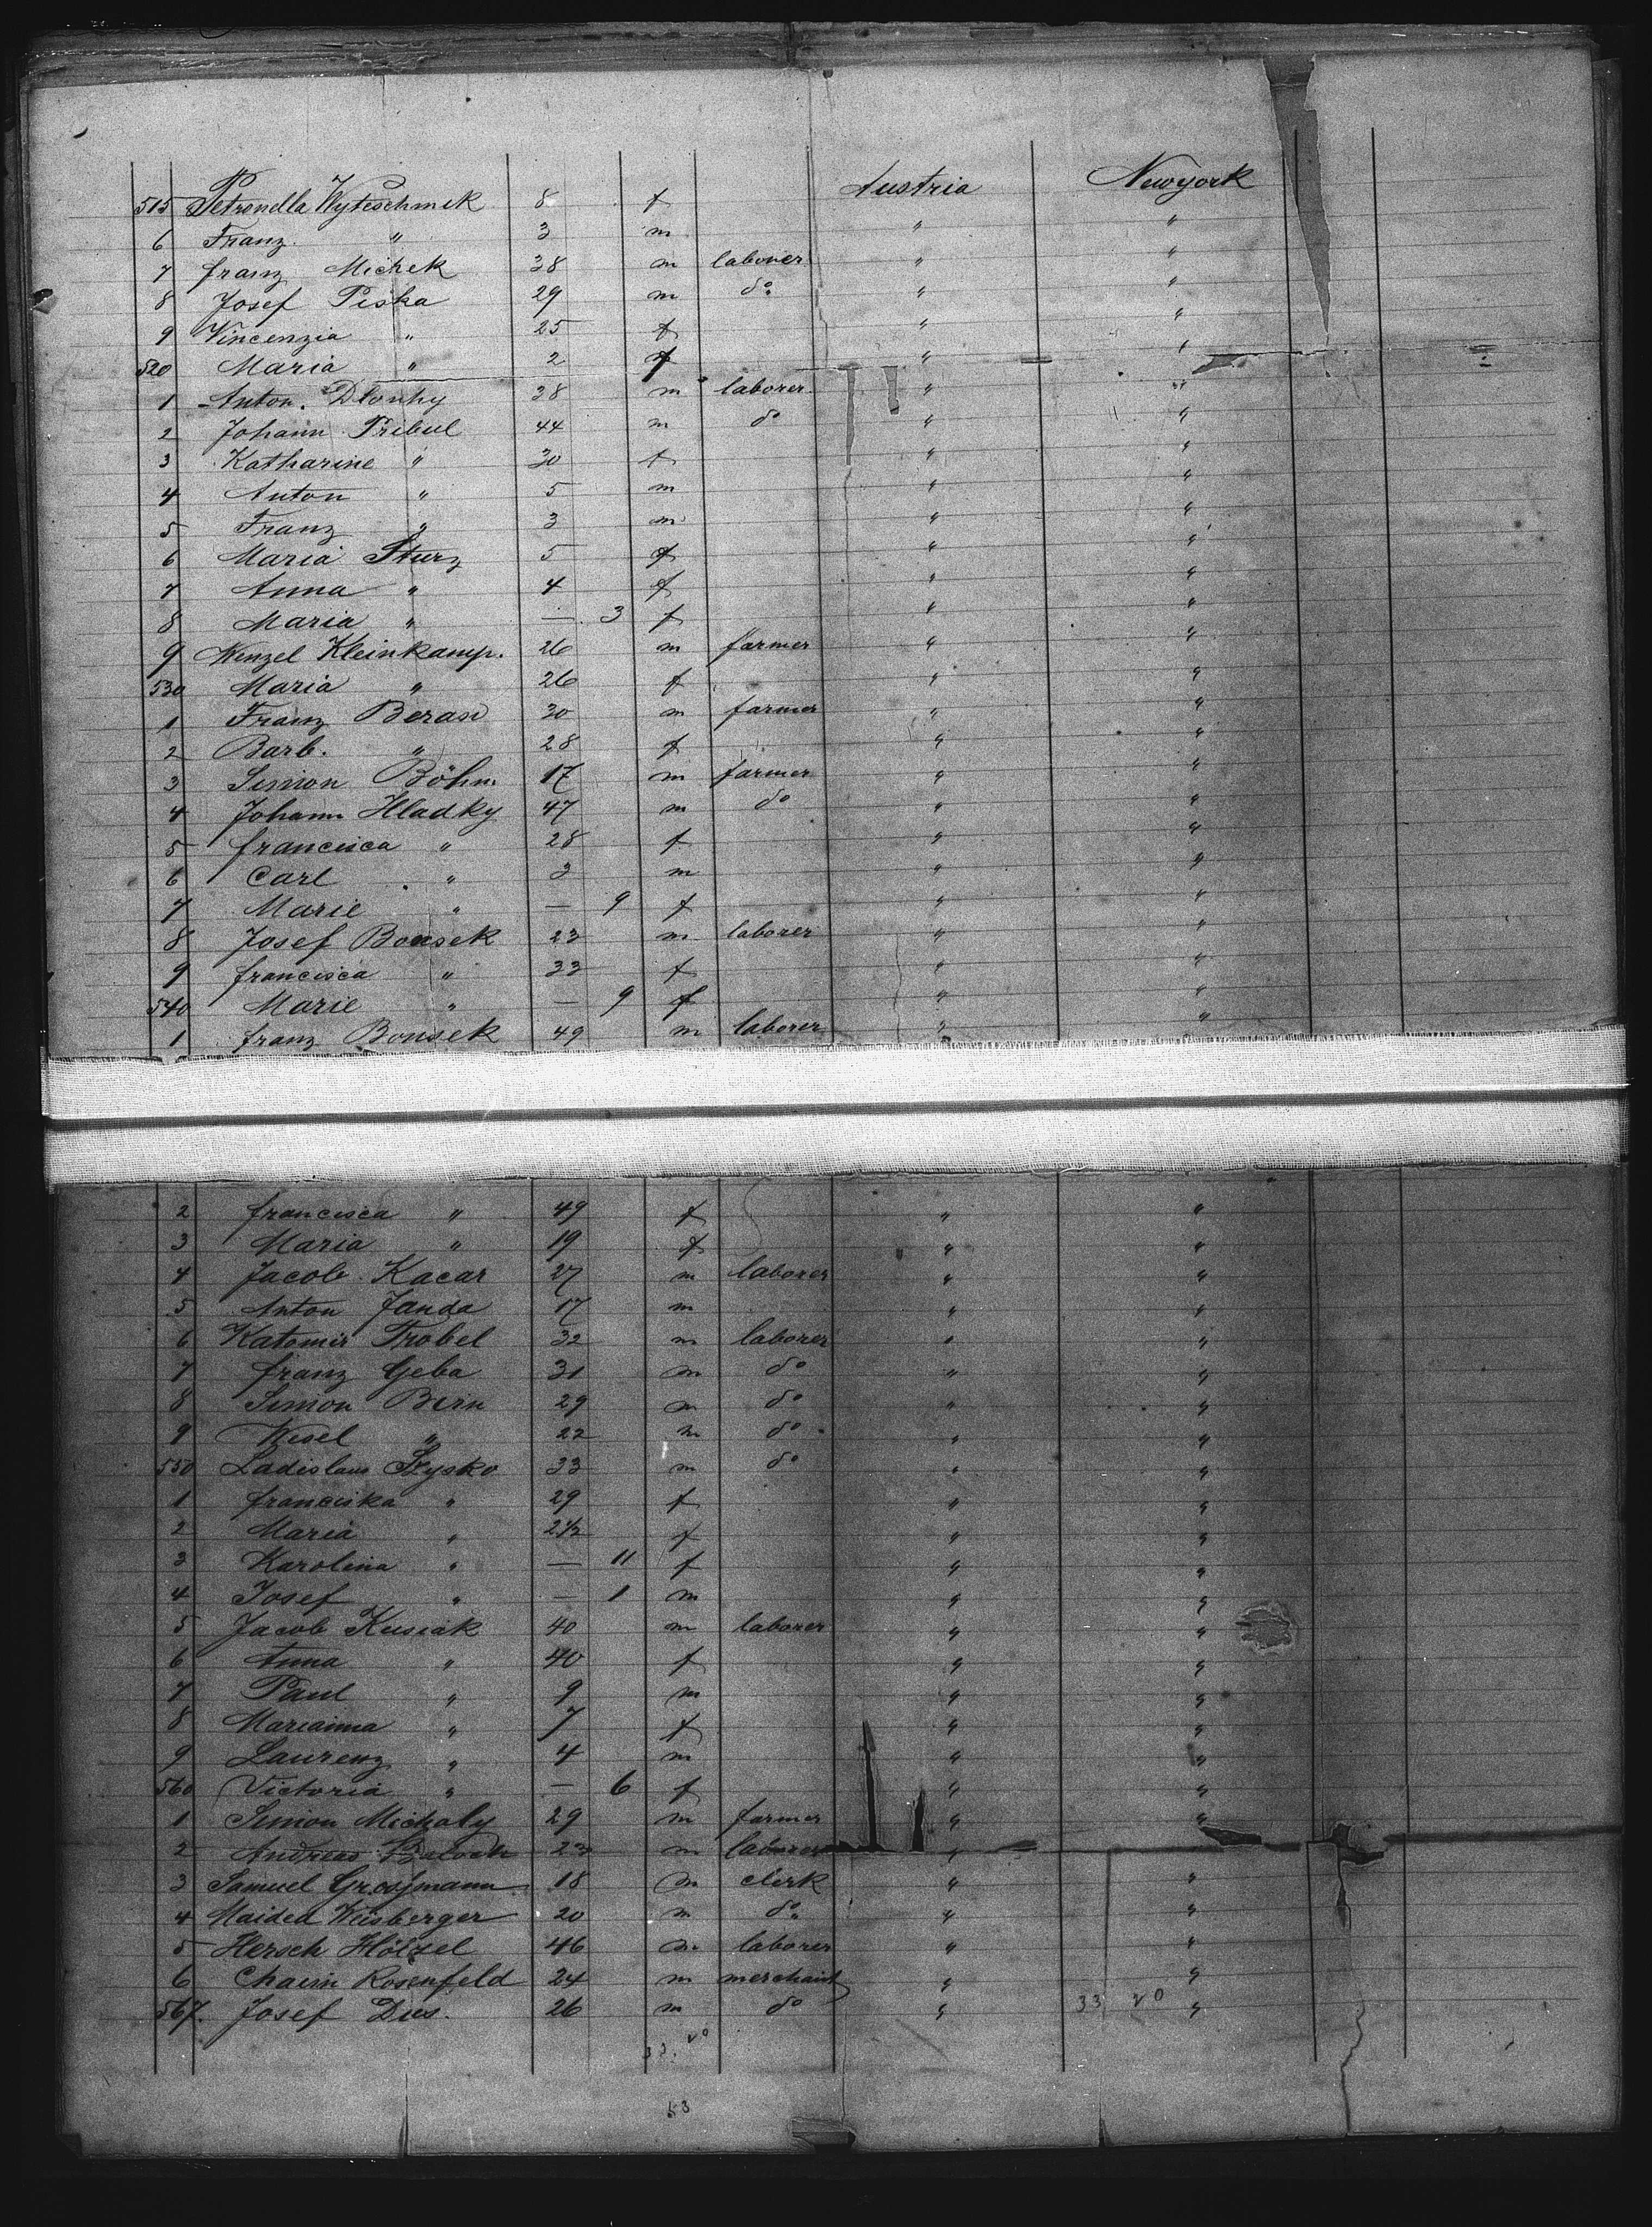 515 Petronella Wyteschnik 8 f Austria Newyork
6 Franz " 3 m " "
7 franz Michek 38 m laborer " "
8 Josef Piska 29 m do " "
9 Vincenzia " 25 f " "
520 Maria " 2 f " "
1 Anton Dlouhy 28 m laborer " "
2 Johann Pribul 44 m do " "
3 Katharine " 30 f " "
4 Anton " 5 m " "
5 Franz " 3 m " "
6 Maria Sturz 5 f " "
7 Anna " 4 f " "
8 Maria " — 3 f " "
9 Wenzel Kleinkamp. 26 m farmer " "
530 Maria " 26 f " "
1 Franz Beran 30 m farmer " "
2 Barb. " 28 f " "
3 Simon Böhm 17 m farmer " "
4 Johann Hladky 47 m do " "
5 francisca " 28 f " "
6 Carl " 3 m " "
7 Marie " — 9 f " "
8 Josef Bousek 23 m laborer " "
9 francisca " 33 f " "
540 Marie " — 9 f " "
1 franz Bousek 49 m laborer " "
2 francisca " 49 f " "
3 Maria " 19 f " "
4 Jacob Kacar 27 m laborer " "
5 Anton Janda 17 m " "
6 Katomir Trobel 32 m laborer " "
7 franz Geba 31 m do " "
8 Simon Birn 29 m do " "
9 Wesel " 22 m do " "
550 Ladislaus Szysko 33 m do " "
1 franciska " 29 f " "
2 Maria " 2½ f " "
3 Karolina " — 11 f " "
4 Josef " — 1 m " "
5 Jacob Kusiak 40 m laborer " "
6 Anna " 40 f " "
7 Paul " 9 m " "
8 Marianna " 7 f " "
9 Laurenz " 4 m " "
560 Victoria " — 6 f " "
1 Simon Michaly 29 m farmer " "
2 Andreas 23 m laborer "
3 Samuel Grossmann 18 m clerk " "
4 Weisberger 20 m do " "
5 Hersch Hölzel 46 m laborer " "
6 Chaim Rosenfeld 24 m merchant " "
567. Josef Dies. 26 m do " 33 20 "
33. 20
53